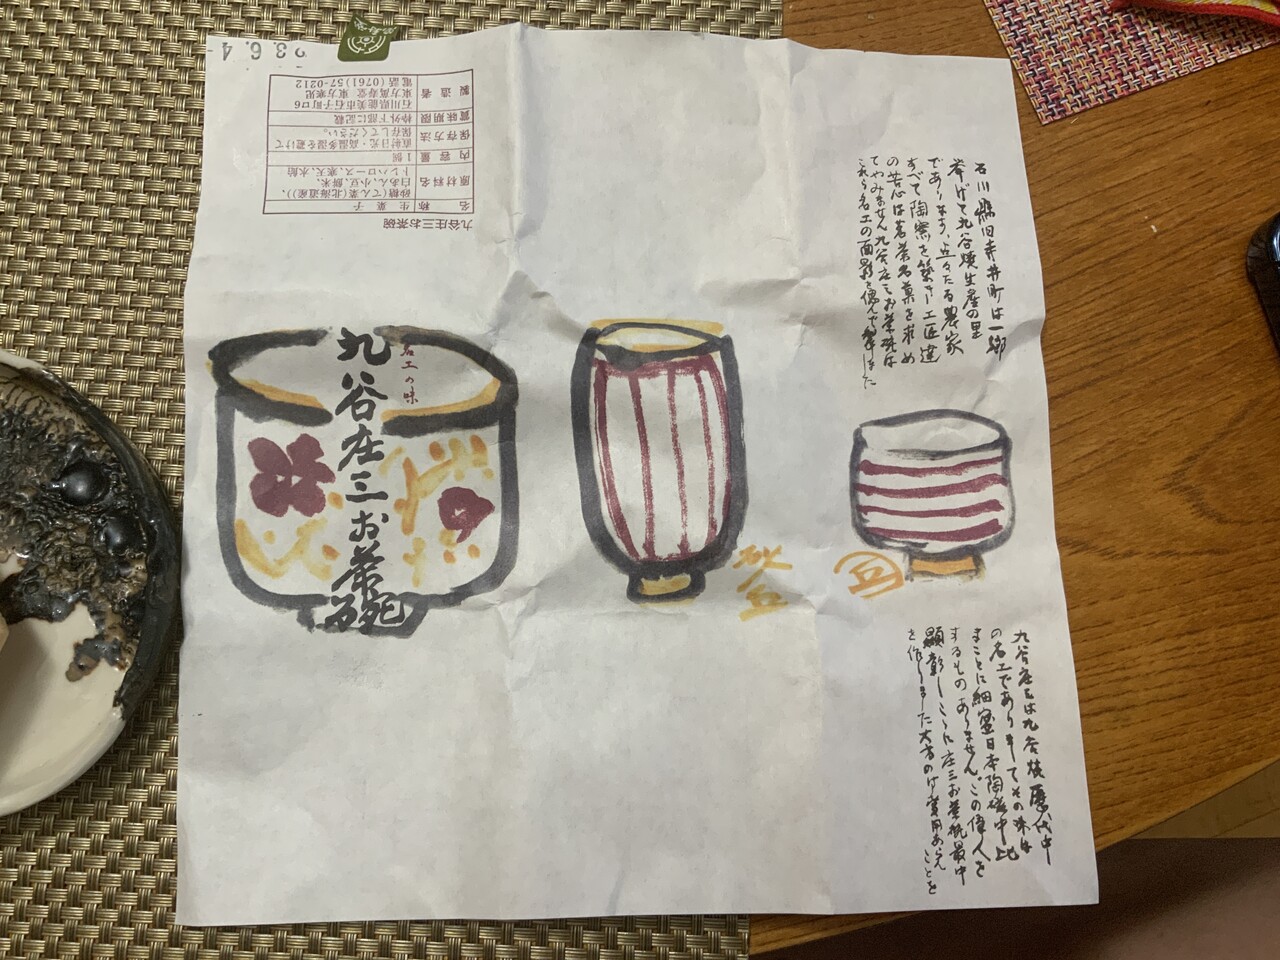 石川県旧寺井町は一郷
挙げて九谷焼生産の里
であります、点々たる農家
すべて陶窯を築き工匠達
の苦心は若茶名菓を求め
てやみません九谷庄三お茶碗は
これら名工の面影を偲んで
名工の味
九谷庄三お茶碗
九谷庄三は九谷焼歴代中
の名工でありましてその味は
まことに細密日本陶磁中比
するものありません。この偉人を
顕彰しここに庄三お茶碗最中
を作りました大方のご賞用あらんことを
九谷庄三お茶碗
名称 生菓子
原材料名 砂糖(てん菜(北海道産))、
白あん、小豆、餅米、
トレハロース、寒天、水飴
内容量 1個
保存方法 直射日光・高温多湿を避けて
保存してください。
賞味期限 枠外下部に記載
製造者 石川県能美市寺井町ロ6
東方萬寿堂 東方寒児
電話(0761)57-0212
23.6.4